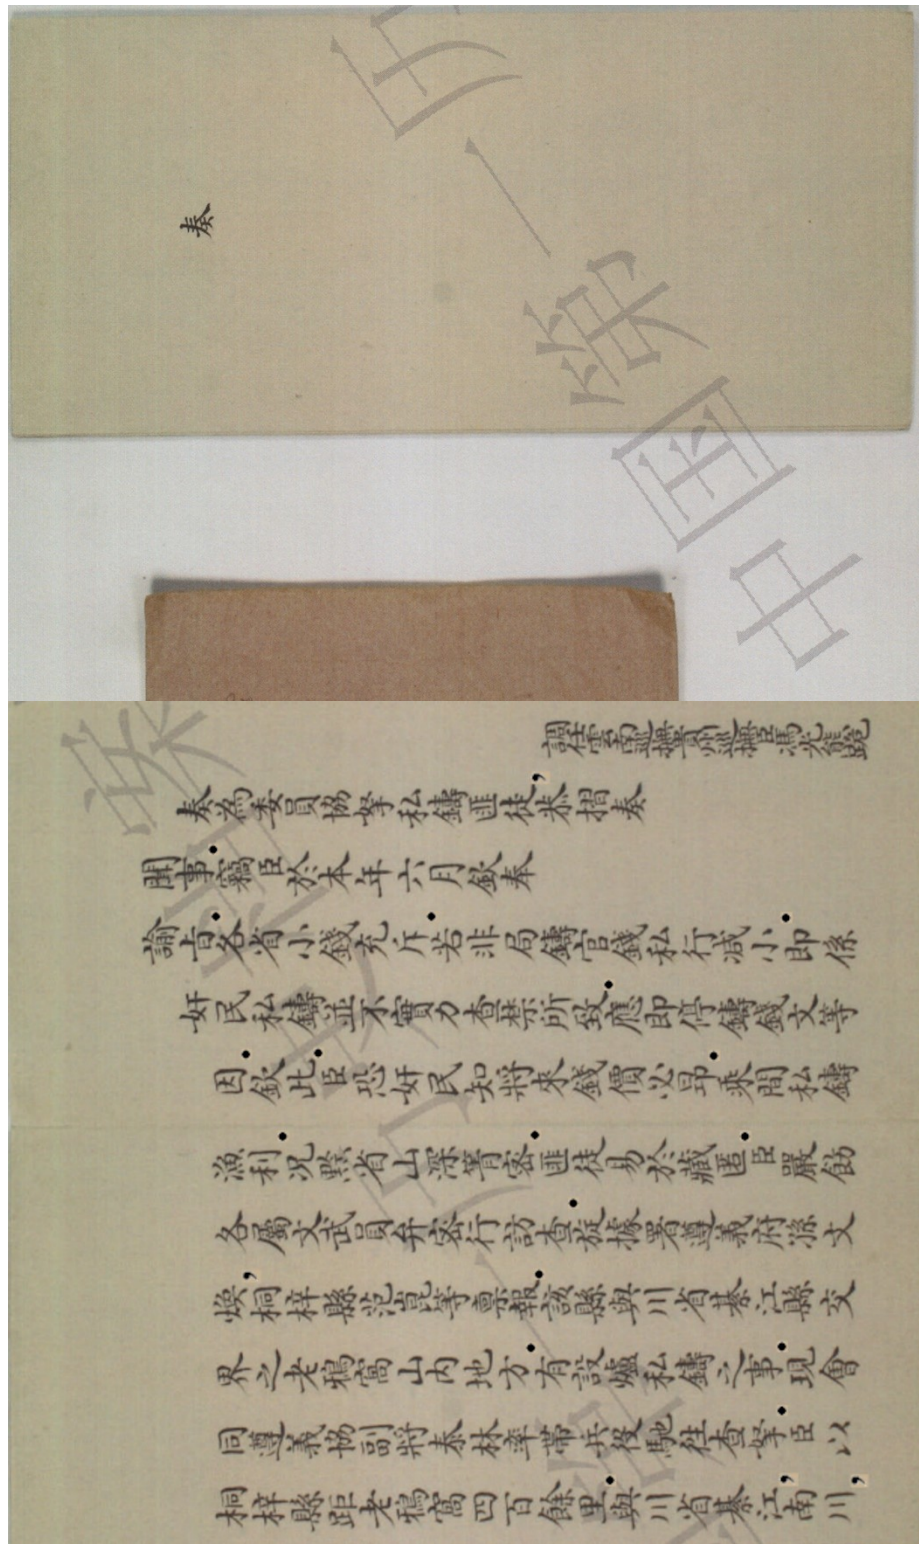 奏
調任雲南巡撫貴州巡撫臣馮光熊跪
奏為委員協拏私鑄匪徒，恭摺奏
聞事·竊臣於本年六月欽奉
諭旨·各省小錢充斥·若非局鑄官錢私行減小·即係
奸民私鑄並不實力查禁所致·應即停鑄錢文等
因·欽此·臣恐奸民知將來錢價必昂·乘間私鑄
漁利·況黔省山深箐密·匪徒易於藏匿·臣嚴飭
各屬文武員弁密行訪查·旋據署遵義府孫文
煥，桐梓縣范崑等稟報·該縣與川省綦江縣交
界之老鴉窩山內地方·有設爐私鑄之事·現會
同遵義協副將泰林率帶兵役馳往查拏·臣以
桐梓縣距老鴉窩四百餘里·與川省綦江，南川，
中国第一历